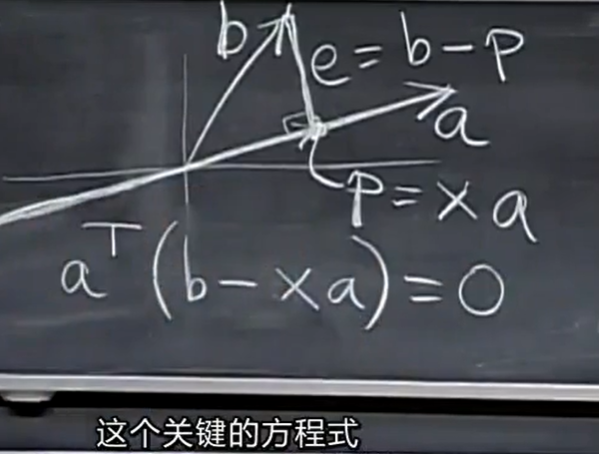 b
e = b - p
a
p = x a
aᵀ (b - x a) = 0
这个关键的方程式